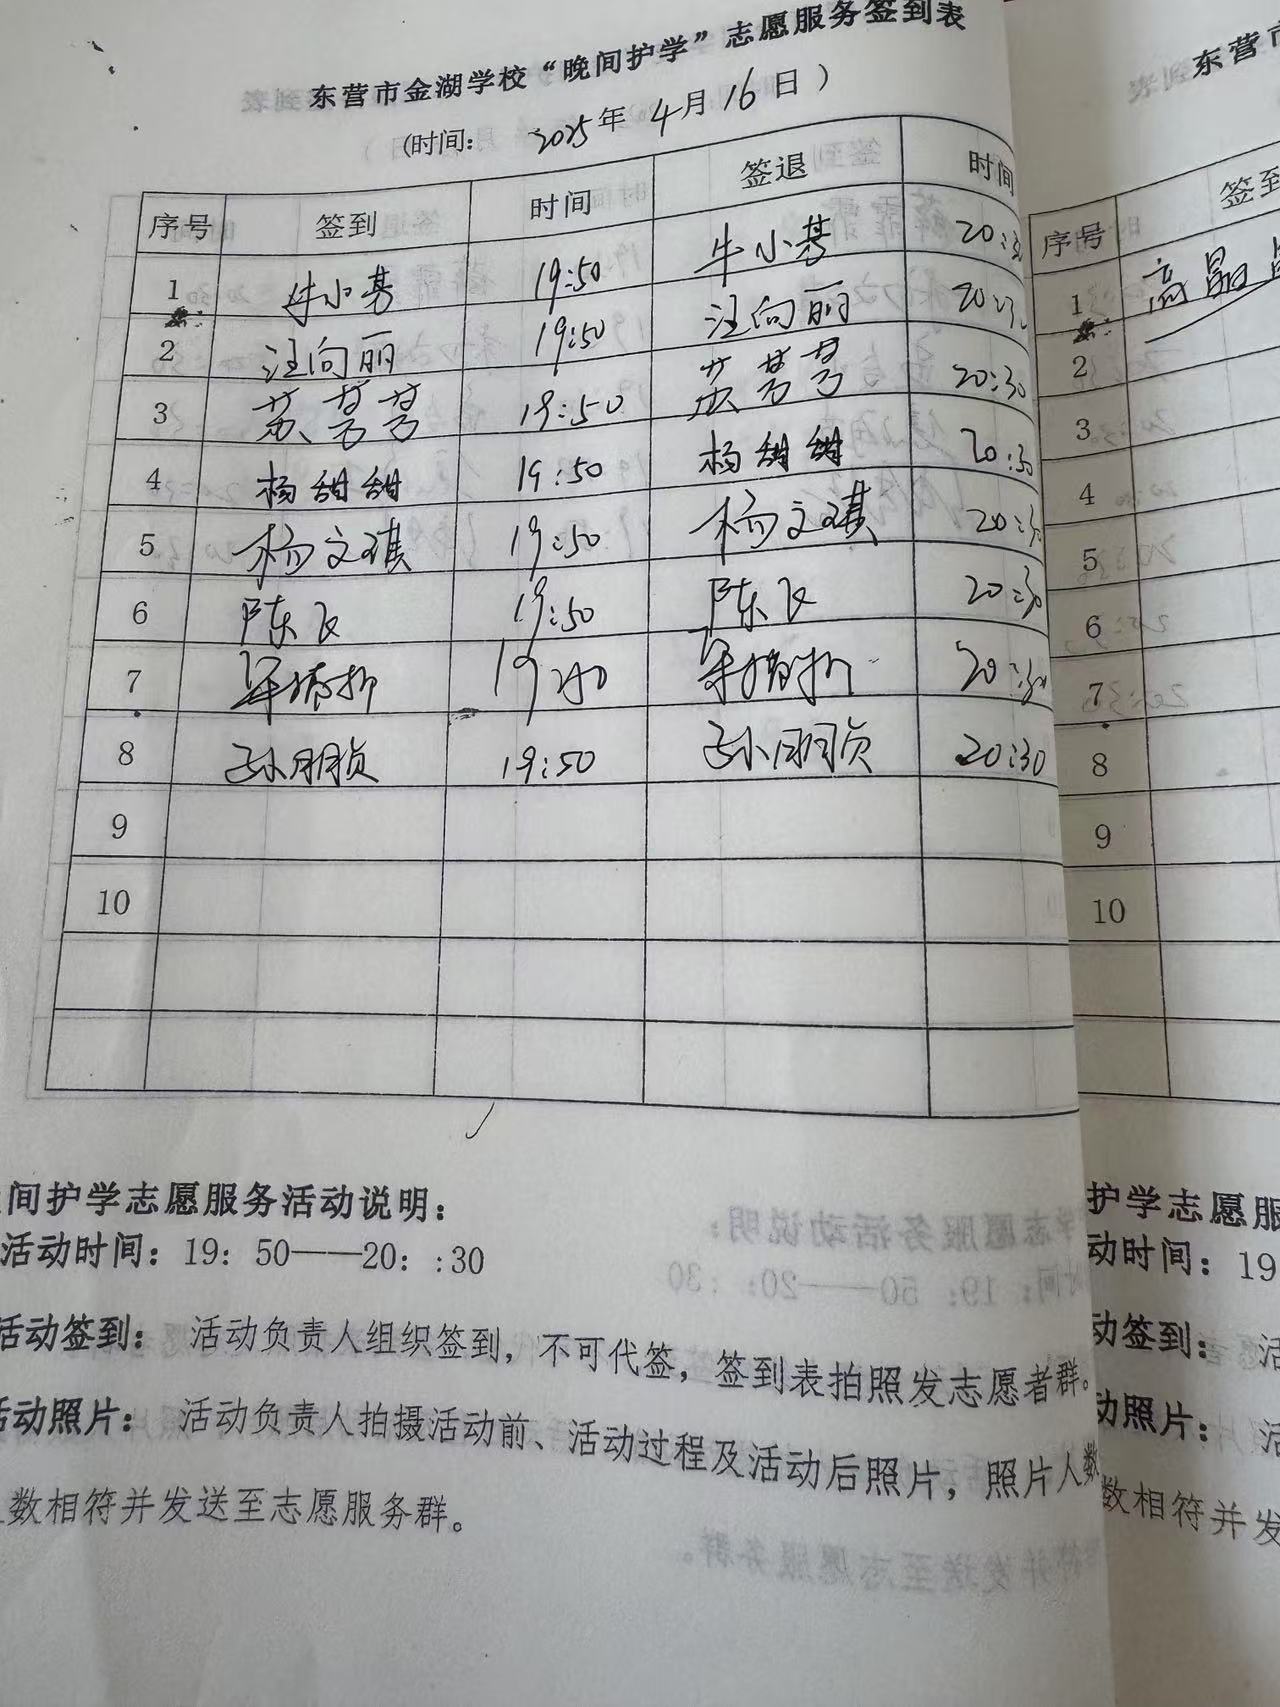 东营市金湖学校“晚间护学”志愿服务签到表
(时间: 2025年 4月16日)
序号 签到 时间 签退 时间
1 牛小芳 19:50 牛小芳 20:30
2 汪向丽 19:50 汪向丽 20:30
3 苏芳芳 19:50 苏芳芳 20:30
4 杨甜甜 19:50 杨甜甜 20:30
5 杨文琪 19:50 杨文琪 20:30
6 陈飞 19:50 陈飞 20:30
7 20:30
8 孙朋贞 19:50 孙朋贞 20:30
9
10
间护学志愿服务活动说明:
活动时间: 19: 50——20: :30
活动签到: 活动负责人组织签到, 不可代签, 签到表拍照发志愿者群。
活动照片: 活动负责人拍摄活动前、活动过程及活动后照片, 照片人数
数相符并发送至志愿服务群。
东营市
序号 签到
1 高晶晶
2
3
4
5
6
7
8
9
10
护学志愿服
动时间: 19
动签到: 活
动照片: 活
数相符并发